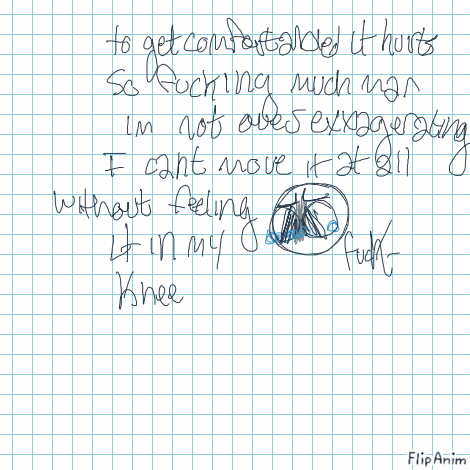 to get comfortabled it hurts
So fucking much man
im not over exxagerating
I cant move it at all
without feeling
it in my fuck-
knee
FlipAnim